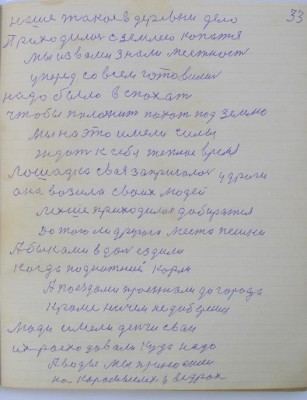 33
наше такое в деревни дело
Приходилос с землею копатя
мы из вами знали местност
уперед со всем готовилис
надо было вспохат
чтобы положит пахат под землю
мы на это имели силы
ждат к себя теплие время
Лошадка свая запрягалас у дроги
ана возила своих людей
легше приходилос дабиратя
До того ло другого места пешки
А быками в дол ездили
Когда поднатний корм
А поездами проезжали до города
Кроме ничем не дабереш
Люди имели денги сваи
их расходавали куда надо
Аводы мы приносили
на коромыслех у ведрах